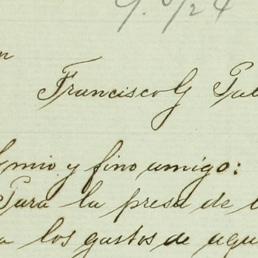 9. 0/24
n
Francisco G
mio y fino amigo:
Para la presa de
a los gustos de